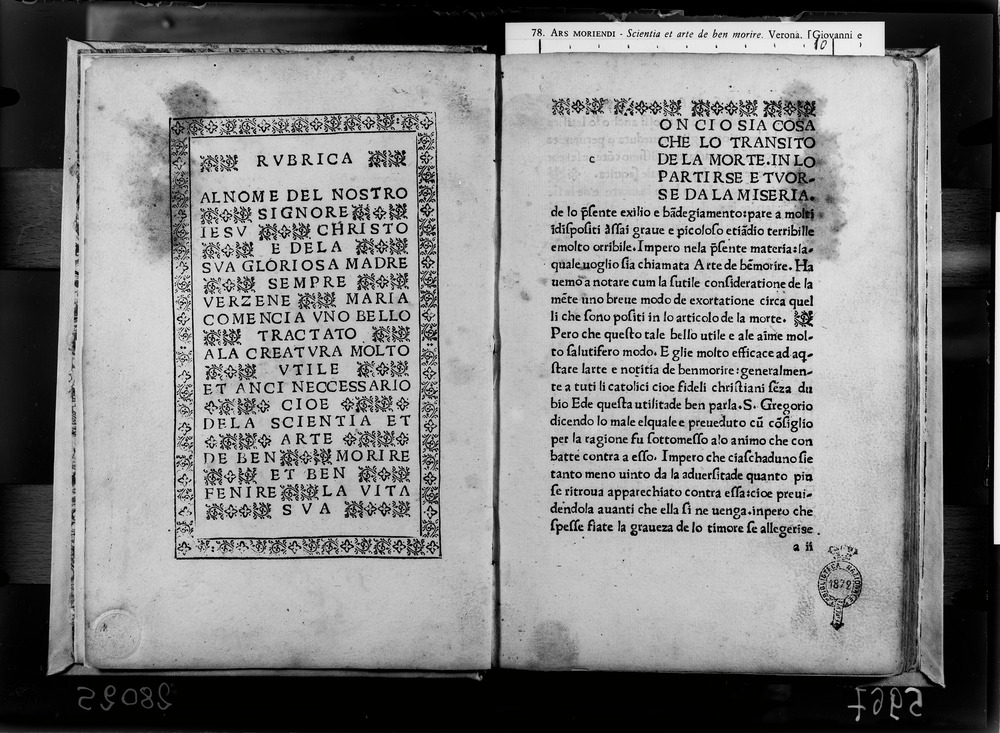 78. ARS MORIENDI - Scientia et arte de ben morire. Verona. [Giovanni e
10
RVBRICA
AL NOME DEL NOSTRO
SIGNORE
IESV CHRISTO
E DELA
SVA GLORIOSA MADRE
SEMPRE
VERZENE MARIA
COMENCIA VNO BELLO
TRACTATO
A LA CREATVRA MOLTO
VTILE
ET ANCI NECCESSARIO
CIOE
DELA SCIENTIA ET
ARTE
DE BEN MORIRE
ET BEN
FENIRE LA VITA
SVA
c
ONCIOSIA COSA
CHE LO TRANSITO
DE LA MORTE. IN LO
PARTIRSE E TVOR-
SE DA LA MISERIA.
de lo p̃sente exilio e bãdegiamento: pare a molti
idispositi assai graue e picoloso etiãdio terribille
e molto orribile. Impero nela p̃sente materia: la-
quale uoglio sia chiamata Arte de bẽmorire. Ha
uemo a notare cum la sutile consideratione de la
mẽte uno breue modo de exortatione circa quel
li che sono positi in lo articolo de la morte.
Pero che questo tale bello utile e ale aĩme mol-
to salutifero modo. E glie molto efficace ad aq-
stare larte e notitia de benmorire: generalmen-
te a tuti li catolici cioe fideli christiani sẽza du
bio Ede questa utilitade ben parla. S. Gregorio
dicendo lo male elquale e preueduto cũ cõsiglio
per la ragione fu sottomesso alo animo che con
batte contra a esso. Impero che ciaschaduno sie
tanto meno uinto da la aduersitade quanto piu
se ritroua apparechiato contra essa: cioe preui-
dendola auanti che ella si ne uenga. inpero che
spesse fiate la graueza de lo timore se allegerise.
a ii
BIBLIOTECA NAZIONALE
1872
28025
5967